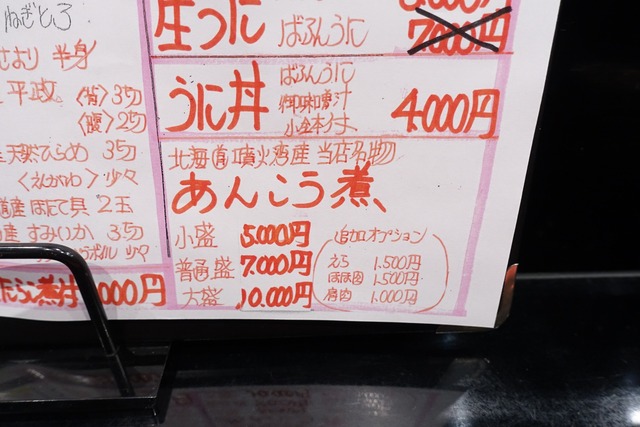 ねぎとろ
さより 半身
平政 〈背〉 3切
〈腹〉 2切
天然ひらめ 3切
〈えんがわ〉 少々
道産 ほたて貝 2玉
産 すみいか 3切
少々
煮付 000円
生うに ばふんうに
7000円
うに丼 ばふんうに
御味噌汁
小鉢付
4000円
北海道噴火湾産 当店名物
あんこう煮
小盛 5.000円
普通盛 7.000円
大盛 10.000円
追加オプション
えら 1.500円
ほほ肉 1.500円
肩肉 1.000円